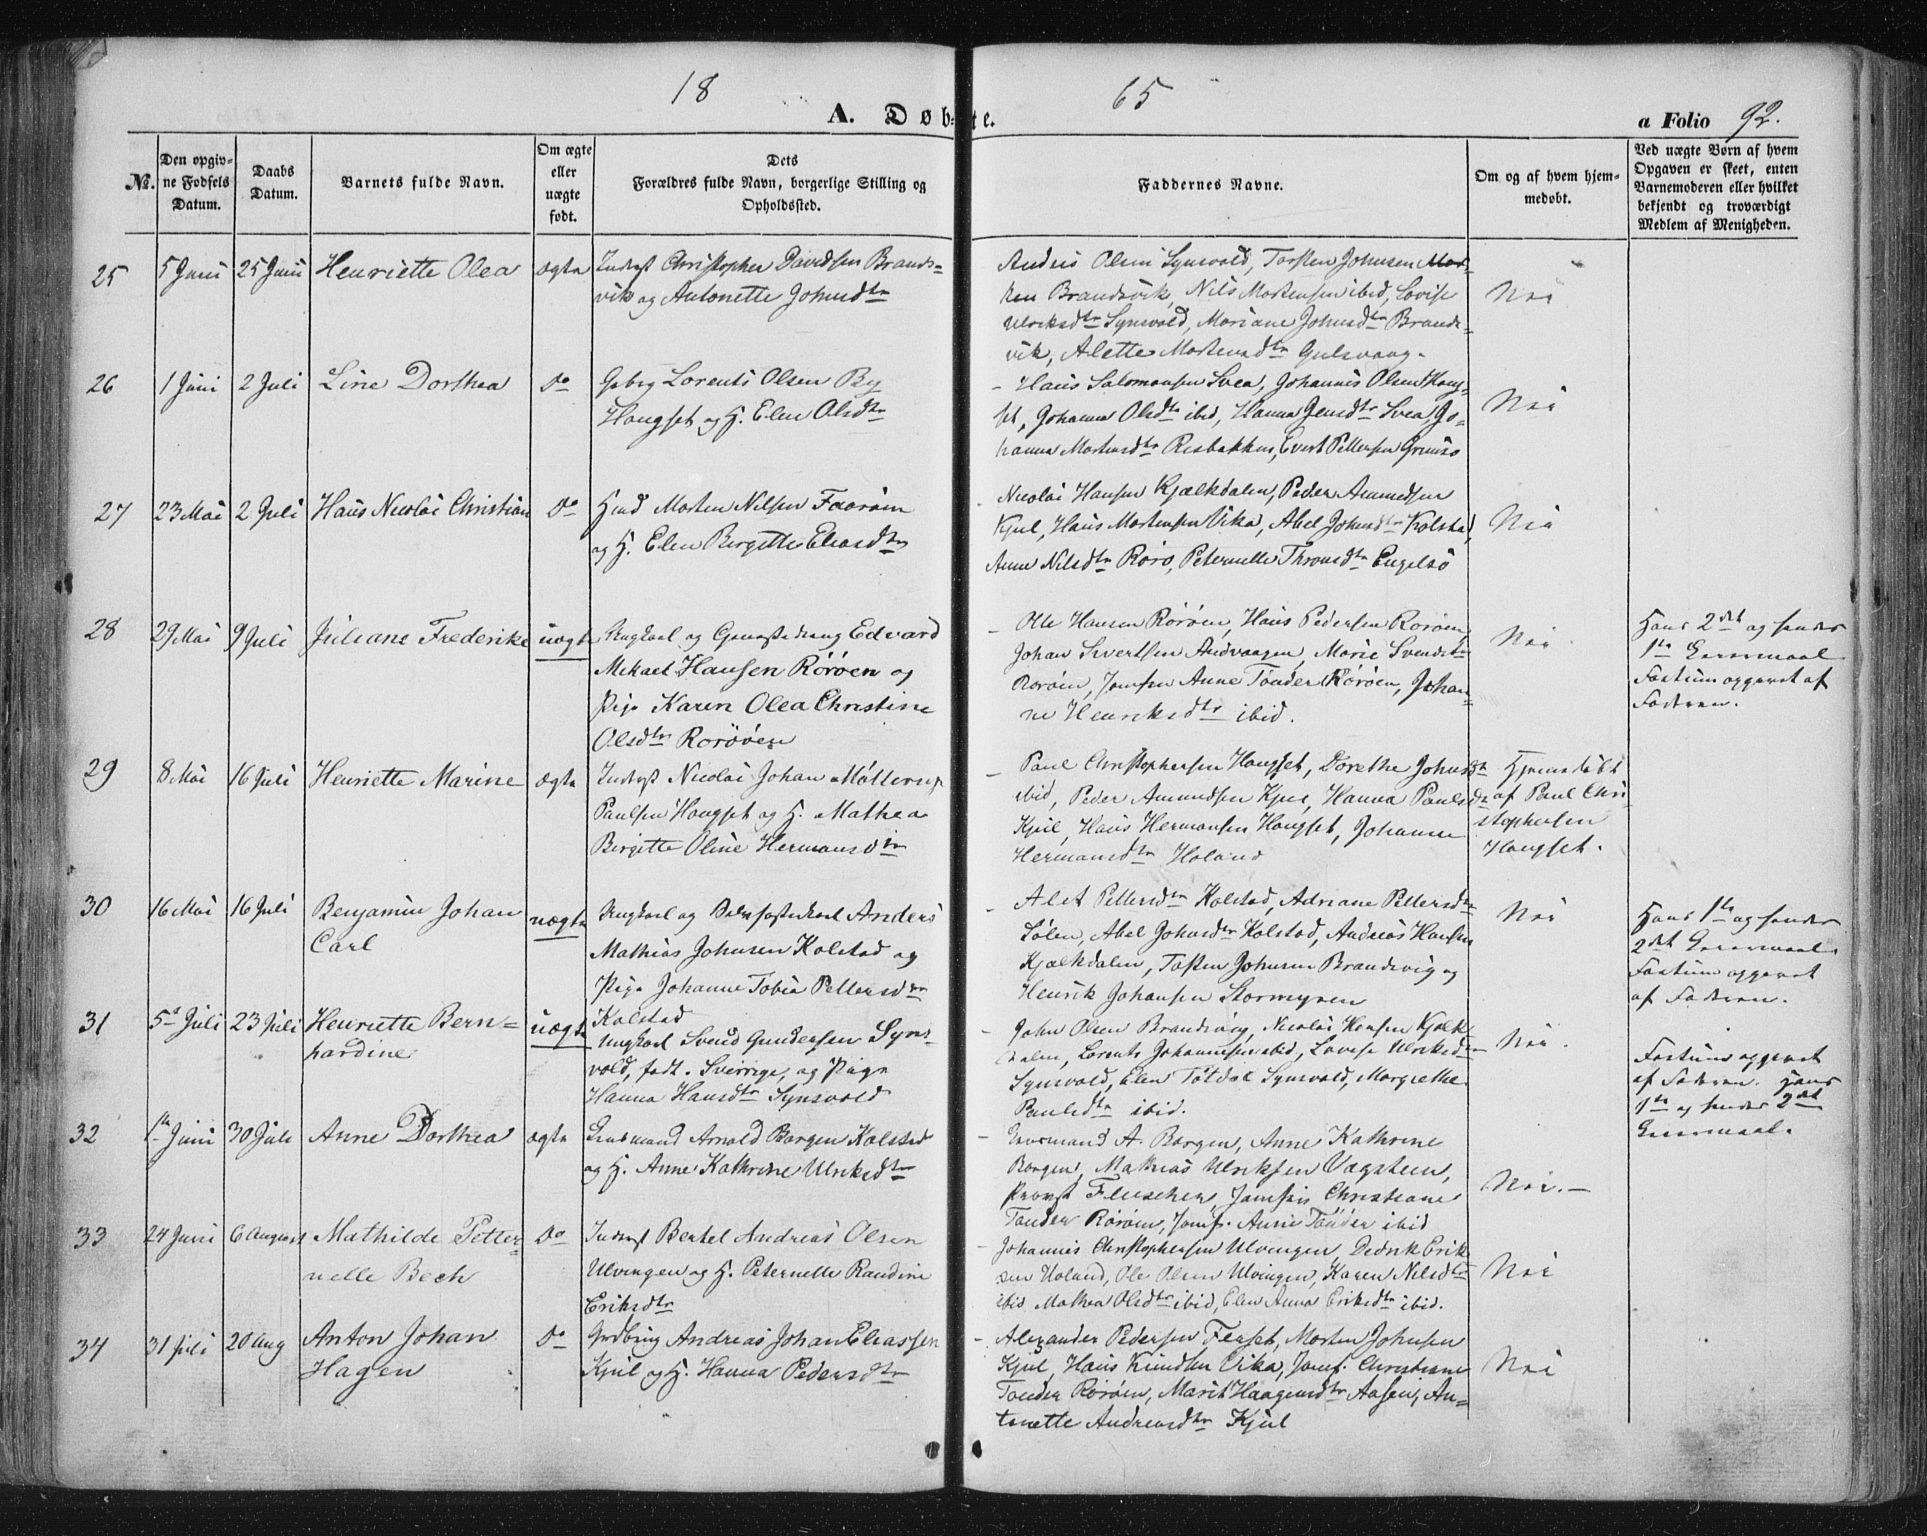 18 65
A. Døbte. a Folio 92.
No.
Den opgiv-
ne Fødsels
Datum.
Daabs
Datum.
Barnets fulde Navn.
Om ægte
eller
uægte
født.
Dets
Forældres fulde Navn, borgerlige Stilling og
Opholdssted.
Faddernes Navne.
Om og af hvem hjem-
medøbt.
Ved uægte Børn af hvem
Opgaven er skeet, enten
Barnemoderen eller hvilket
bekjendt og troværdigt
Medlem af Menigheden.
25 5 Juni 25 Juni Henriette Olea ægte
Inderst Christopher Davidsen Brands-
vik og Antonette Johnsdtr
Anders Olsen Synsvold, Torsten Johnsen
Brandsvik, Nils Mortensen ibid, Lovise
Ulriksdtr Synsvold, Mariane Johnsdtr Brands-
vik, Alette Mortensdtr Gulsvaag.
Nei
26 1 Juni 2 Juli Line Dorthea Do
Gbrg Lorents Olsen By
Hougset og H. Elen Olsdtr
Hans Salomonsen Svea, Johannes Olsen Houg-
set, Johanna Olsdtr ibid, Hanna Jensdtr Svea, Jo-
hanna Mortensdtr Resbakken, Evert Pettersen Grimsø
Nei
27 23 Mai 2 Juli Hans Nicolai Christian Do
Hmd Morten Nilsen Faarøen
og H. Elen Birgitte Eliasdtr
Nicolai Hansen Kjælkdalen, Peder Amundsen
Kjul, Hans Mortensen Vika, Abel Johnsdtr Kolstad,
Anne Nilsdtr Rørø, Peternelle Thronsdtr Engelsø
Nei
28 29 Mai 9 Juli Juliane Frederike uægte
Ungkarl og Edvard
Mikael Hansen Rørøen og
Pige Karen Olea Christine
Olsdtr Rørøen
Ole Hansen Rørøen, Hans Pedersen Rørøen,
Johan Sivertsen Andvaagen, Marie Svendsdtr
Rørøen, Jomfru Anne Tønder Rørøen, Johan-
ne Henriksdtr ibid.
Nei
Hans 2det og hendes
1ste Leiermaal
Factum opgivet af
Faderen.
29 8 Mai 16 Juli Henriette Marine ægte
Inderst Nicolai Johan Møllerup
Paulsen Hougset og H. Mathea
Birgitte Oline Hermansdtr
Paul Christophersen Hougset, Dorethe Johnsdtr
ibid, Peder Amundsen Kjul, Hanna Paulsdtr
Kjul, Hans Hermansen Hougset, Johanne
Hermansdtr Holand
Hjemdøbt
af Paul Chri-
stophersen
Hougset.
30 16 Mai 16 Juli Benjamin Johan
Carl uægte
Ungkarl og Anders
Mathias Johnsen Kolstad og
Pige Johanne Tobia Pettersdtr
Kolstad
Alet Pettersdtr Kolstad, Adriane Pettersdtr
Sølen, Abel Johnsdtr Kolstad, Andreas Hansen
Kjælkdalen, Torsten Johnsen Brandsvig og
Henrik Johansen Stormyren
Nei
Hans 1ste og hendes
2det Leiermaal
Factum opgivet
af Faderen.
31 5te Juli 23 Juli Henriette Bern-
hardine uægte
Ungkarl Svend Gundersen Syns-
vold, født i Sverrige, og Pige
Hanna Hansdtr Synsvold
John Olsen Brandsvig, Nicolai Hansen Kjælk-
dalen, Lorents Johannesen ibid, Lovise Ulriksdtr
Synsvold, Elen Synsvold, Margrethe
Paulsdtr ibid.
Nei.
Factum opgivet
af Faderen. Hans
1ste og hendes 2det
Leiermaal.
32 1ste Juni 30 Juli Anne Dorthea ægte
Arnold Borgen Kolstad
og H. Anne Kathrine Ulriksdtr
A. Borgen, Anne Kathrine
Borgen, Mathias Ulriksen Vægsteen,
Provst Fleischer, Jomfru Christiane
Tønder Rørøen, Jomf. Anne Tønder ibid
Nei.
33 24 Juni 6 August Mathilde Petter-
nelle Bech Do
Inderst Bertel Andreas Olsen
Ulvingen og H. Peternelle Randine
Eriksdtr
Johannes Christophersen Ulvingen, Dedrik Erik-
sen Holand, Ole Olsen Ulvingen, Karen Nilsdtr
ibid Mathea Olsdtr ibid, Elen Anna Eriksdtr ibid.
Nei
34 31 Juli 20 Aug Anton Johan
Hagen Do
Grdbrug Andreas Johan Eliassen
Kjul og H. Hanna Pedersdtr
Alexander Pedersen Ferset, Morten Johnsen
Kjul, Hans Knudsen Vika, Jomf. Christiane
Tønder Rørøen, Marit Haagensdtr Aasen, An-
tonette Andreasdtr Kjul
Nei